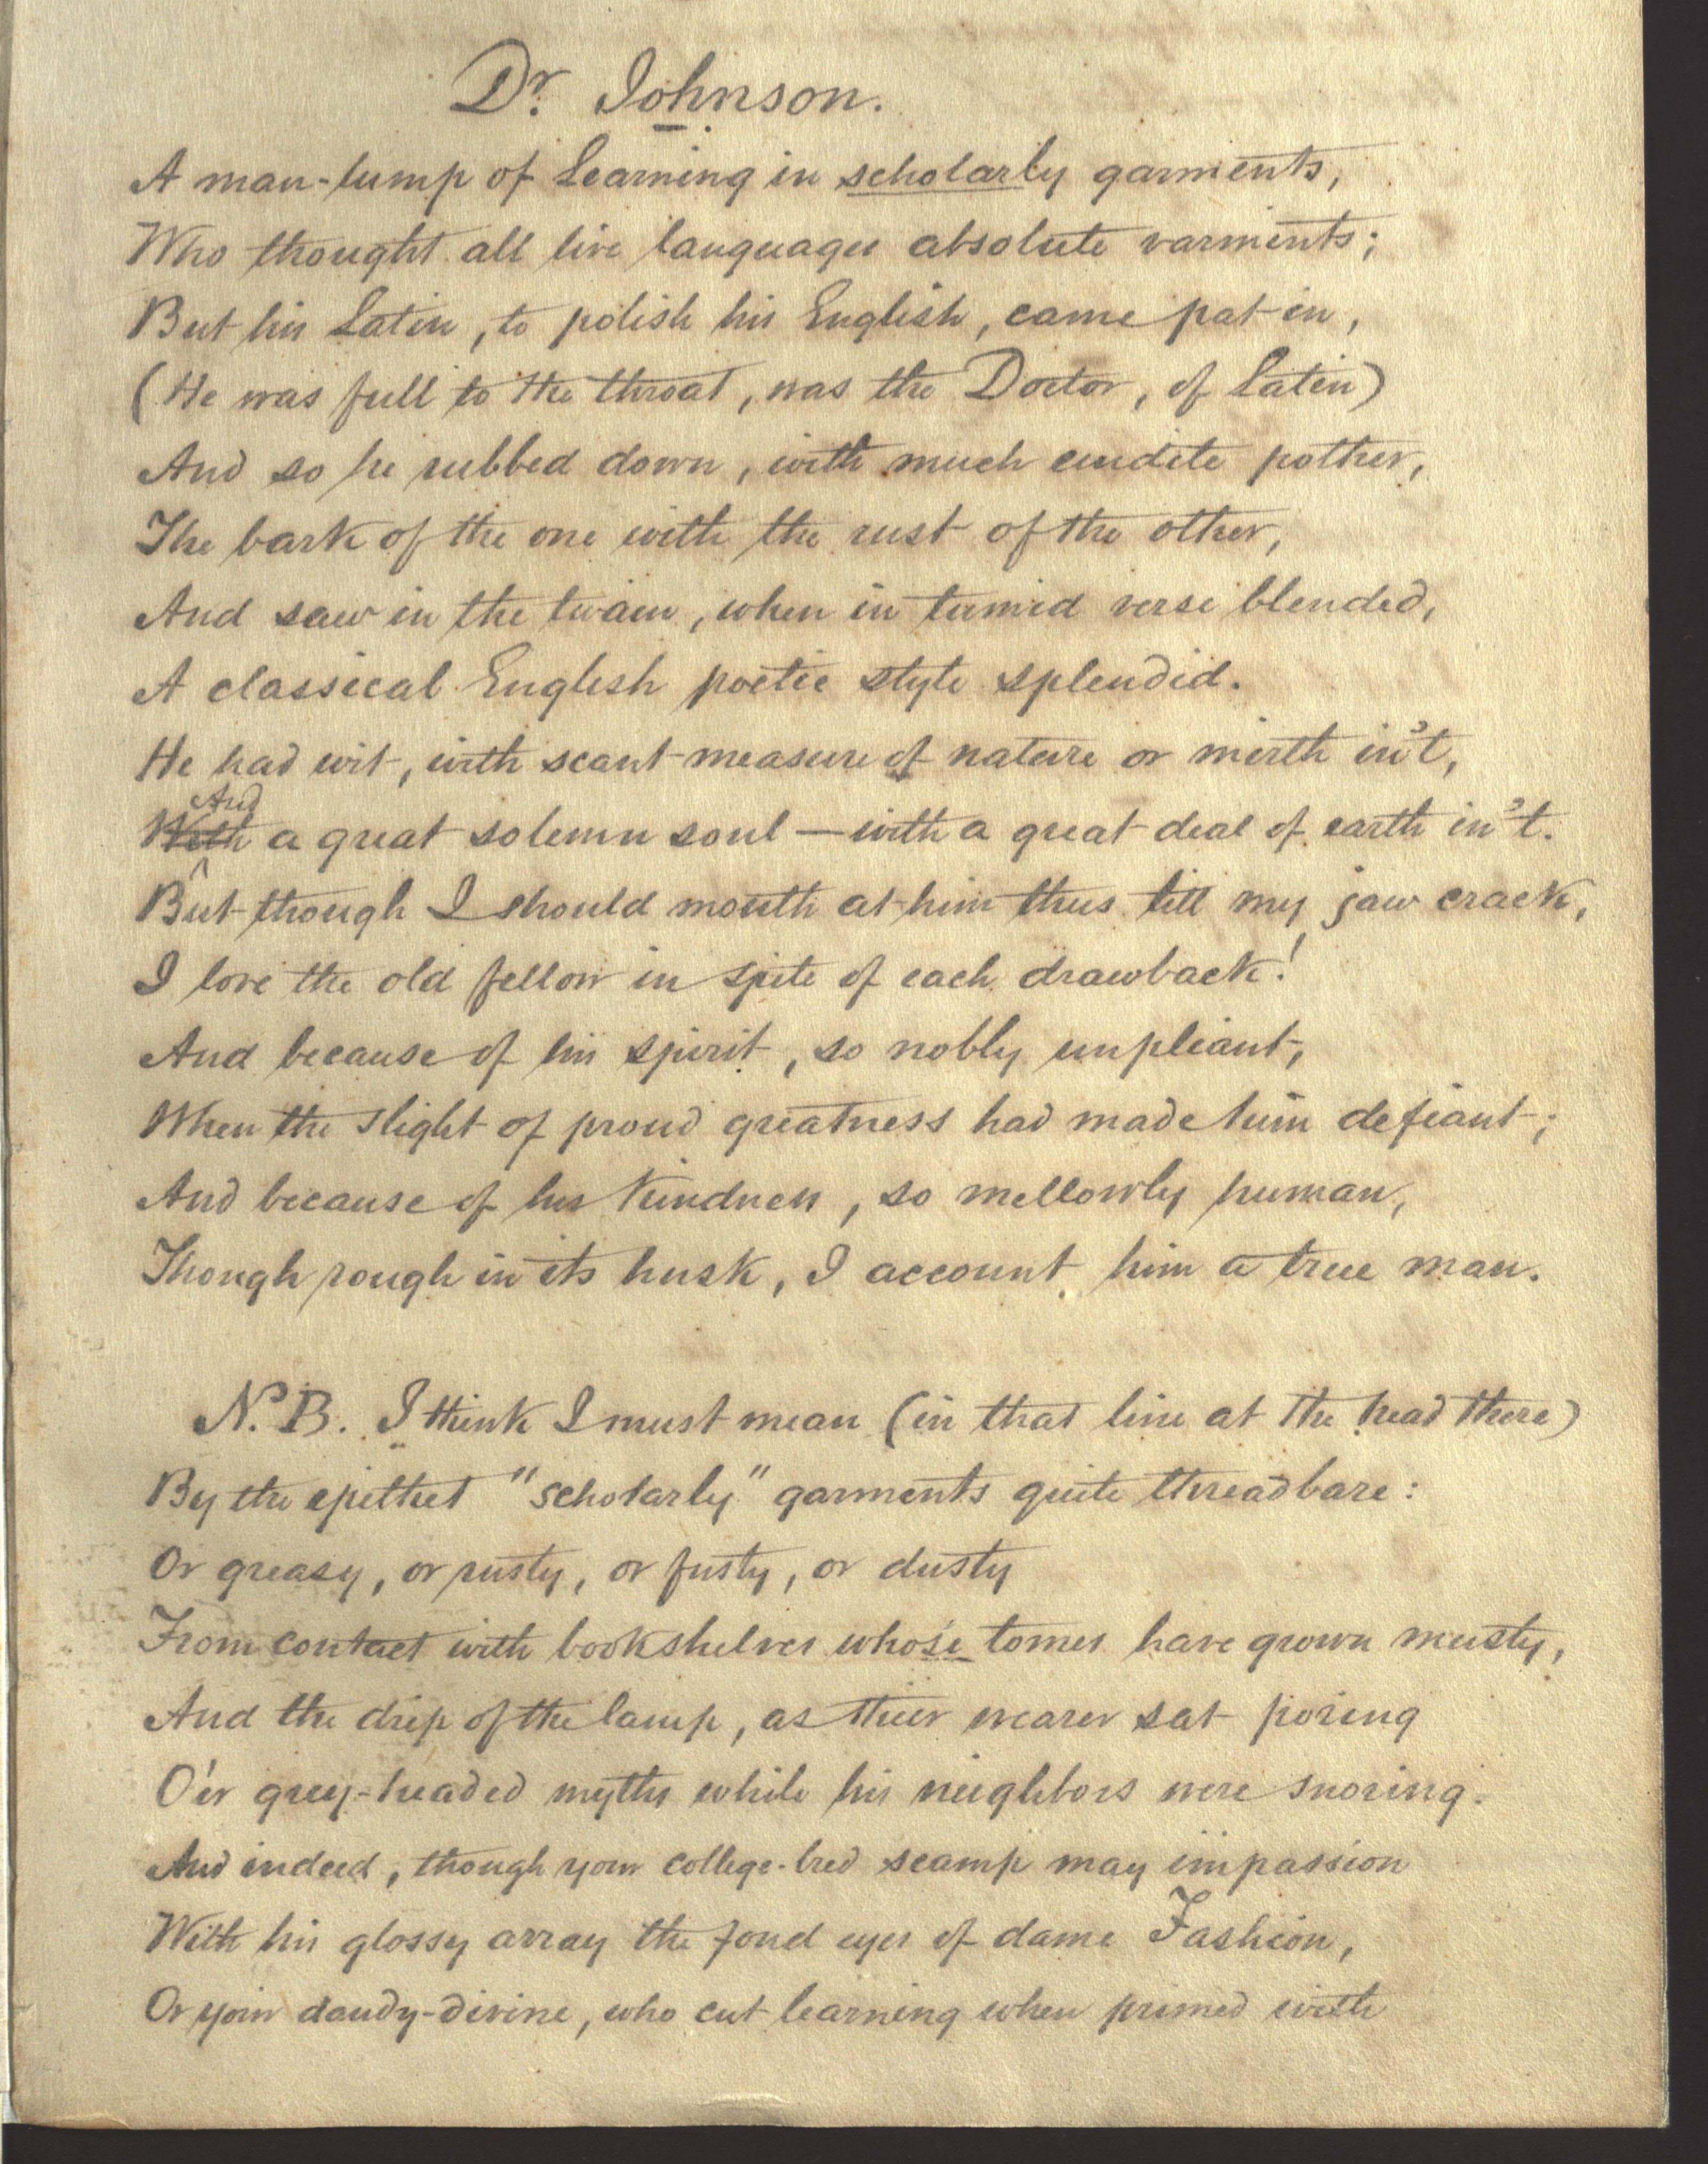 Dr. Johnson.
A man-lump of Learning in scholarly garments,
Who thought all live languages absolute varments;
But his Latin, to polish his English, came pat in,
(He was full to the throat, was the Doctor, of Latin)
And so he rubbed down, with much erudite pother,
The bark of the one with the rust of the other,
And saw in the twain, when in tumid verse blended,
A classical English poetic style splendid.
He had wit, with scant measure of nature or mirth in't,
And
With a great solemn soul — with a great deal of earth in't.
But though I should mouth at him thus till my jaw crack,
I love the old fellow in spite of each drawback!
And because of his spirit, so nobly unpliant,
When the slight of proud greatness had made him defiant;
And because of his kindness, so mellowly human,
Though rough in its husk, I account him a true man.
N.B. I think I must mean (in that line at the head there)
By the epithet "scholarly" garments quite threadbare:
Or greasy, or rusty, or fusty, or dusty
From contact with bookshelves whose tomes have grown musty,
And the drip of the lamp, as their wearer sat poring
O'er grey-headed myths while his neighbors were snoring.
And indeed, though your college-bred scamp may impassion
With his glossy array the fond eyes of dame Fashion,
Or your dandy-divine, who cut learning when primed with